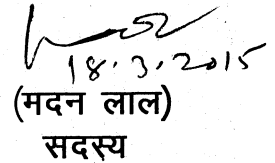 18.3.2015
(मदन लाल)
सदस्य